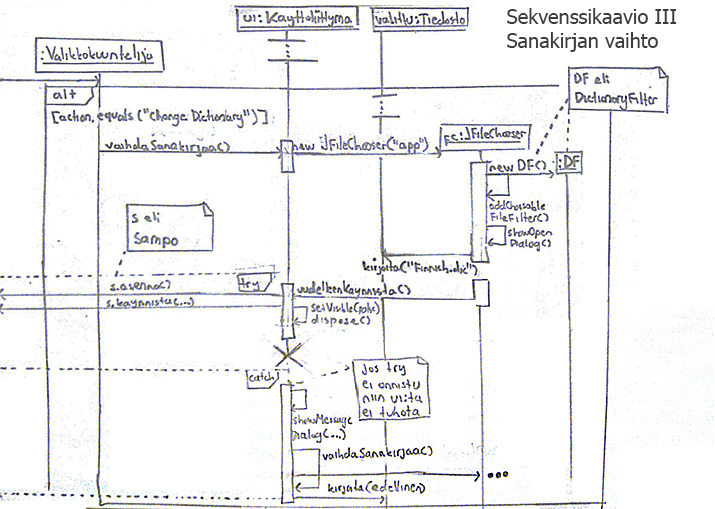 Sekvenssikaavio III
Sanakirjan vaihto
ui:Käyttöliittymä
valittu:Tiedosto
:Valikkokuuntelija
DF eli
DictionaryFilter
alt
[action.equals("Change Dictionary")]
vaihdaSanakirjaa()
new JFileChooser("app")
fc:JFileChooser
new DF()
:DF
addChoosable
FileFilter()
showOpen
Dialog()
S eli
Sampo
kirjoita("Finnish.dic")
try
s.asenna()
uudelleenkäynnistä()
s.kaynnista(...)
setVisible(false)
dispose()
catch
Jos try
ei onnistu
niin uita
ei tuhota
showMessage
Dialog(...)
vaihdaSanakirjaa()
kirjoita(edellinen)